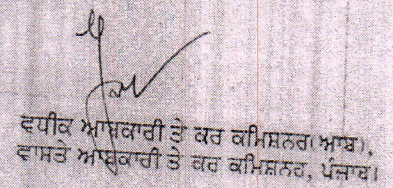 ਵਧੀਕ ਆਬਕਾਰੀ ਤੇ ਕਰ ਕਮਿਸ਼ਨਰ(ਆਬ),
ਵਾਸਤੇ ਆਬਕਾਰੀ ਤੇ ਕਰ ਕਮਿਸ਼ਨਰ, ਪੰਜਾਬ।